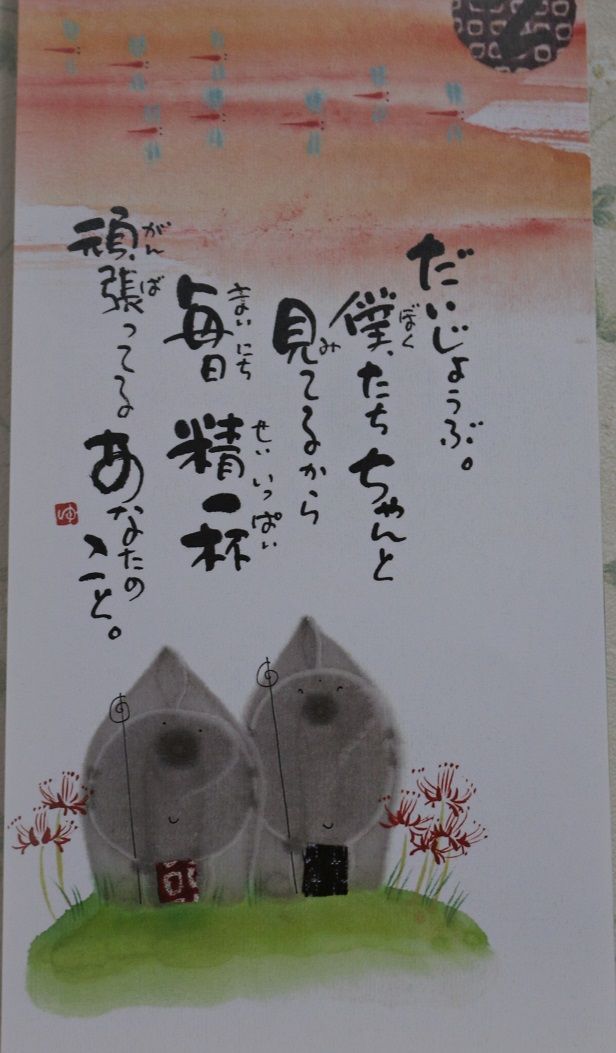 だいじょうぶ。
僕たち ちゃんと
ぼく
見てるから
み
毎日 精一杯
まいにち せいいっぱい
頑張ってる あなたの
がんば
こと。
ゆ